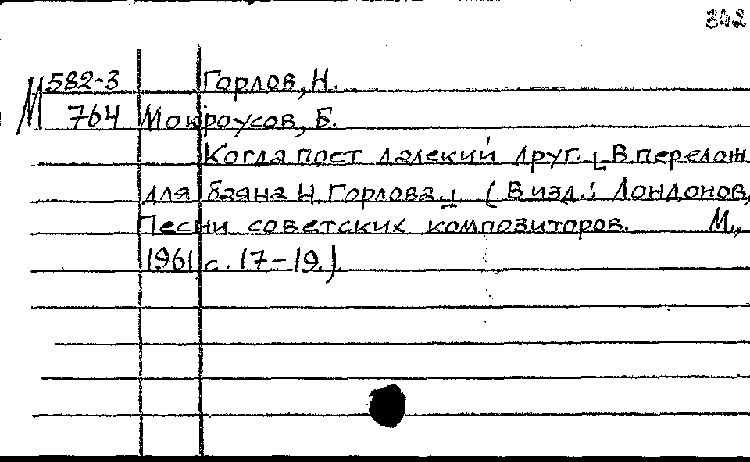 342
М 582-3 Горлов, Н.
764 Мокроусов, Б.
Когда поет далекий друг. [В перелож.
для баяна Н. Горлова.] (В изд.: Лондонов,
Песни советских композиторов. М.,
1961 с. 17-19.)